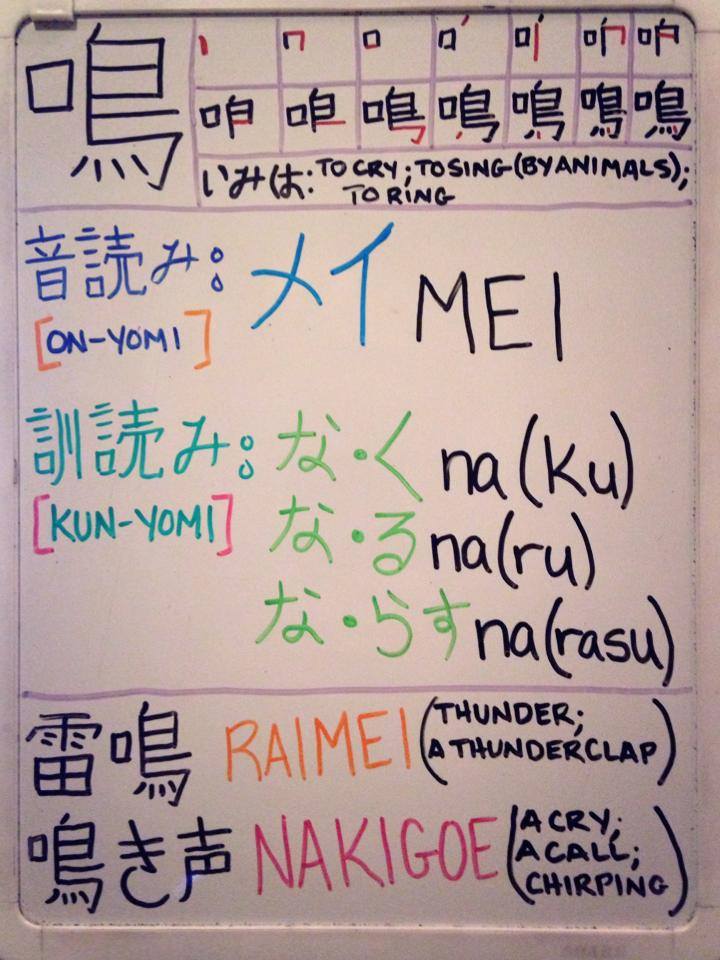 鳴
いみは: TO CRY; TO SING (BY ANIMALS);
TO RING
音読み: メイ MEI
[ON-YOMI]
訓読み: な・く na(ku)
[KUN-YOMI] な・る na(ru)
な・らす na(rasu)
雷鳴 RAIMEI (THUNDER;
A THUNDERCLAP)
鳴き声 NAKIGOE (A CRY;
A CALL;
CHIRPING)